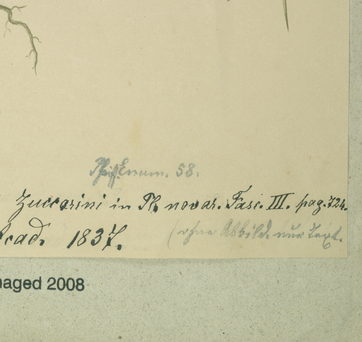 Pfeiff. Enum. 58.
Zuccarini in Pl. novar. Fasc. III. pag. 724.
Acad. 1837.
(ohne Abbild. nur Text.
maged 2008